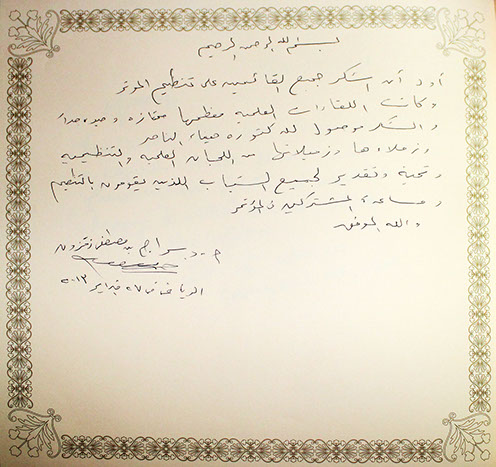 بسم الله الرحمن الرحيم
أود أن أشكر جميع القائمين على تنظيم المؤتمر
وكانت اللقاءات العلمية معظمها ممتازة وجيدة جداً
والشكر موصول للدكتورة ضياء الناصر
وزملاءها وزميلاتها من اللجان العلمية والتنظيمية
وتحية وتقدير لجميع الشباب اللذين يقومون بالتنظيم
ومساعدة المشتركين في المؤتمر
والله الموفق
د. سراج بن مصطفى
الرياض في ٢٧ فبراير ٢٠١٣